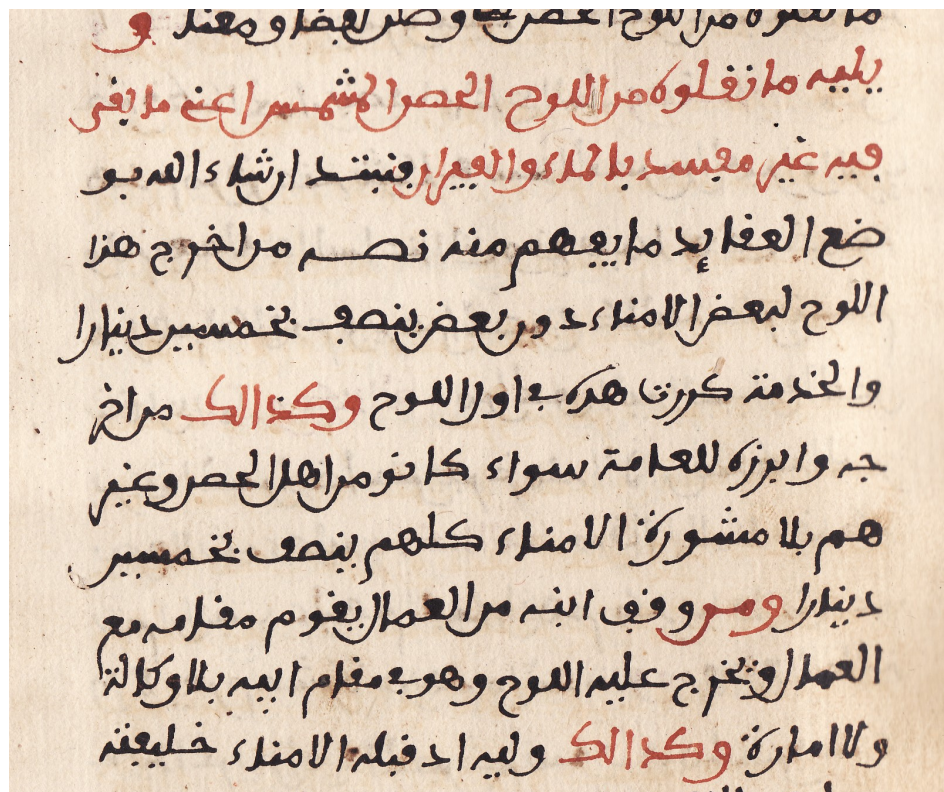 ما نقلوه من اللوح الخضر لفضا ومعنى و
يليه ما نقلوه من اللوح الخضر المشمس اعنه ما بقى
فيه غير مفسد بالماء والفيران فنبتد ان شاء الله بو
ضع العقايد ما يفهم منه نصه من اخرج هذا
اللوح لبعض الامناء دون بعض ينصف بخمسين دينارا
والخدمة كررت هده ب اول اللوح وكذالك من اخر
جه وابرزه للعامة سواء كانو من اهل الحصن وغير
هم بلا مشورة الامناء كلهم ينصف بخمسين
دينارا ومن وقف ابنه من العمال يقوم مقامه مع
العمال ويخرج عليه اللوح وهو ب مقام ابيه بلا وكالة
ولا امارة وكذالك وليه اد قبله الامناء خليفته